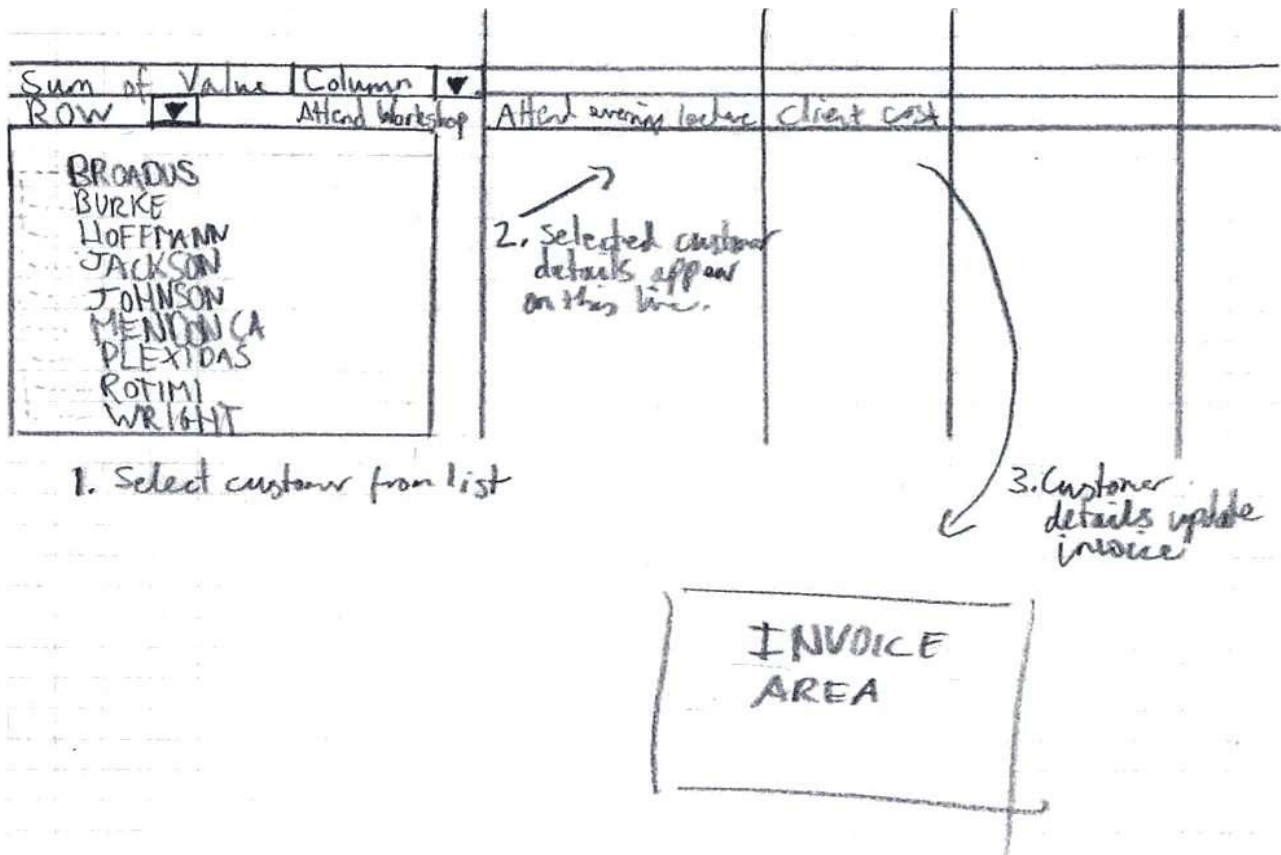 Sum of Value Column
ROW Attend Workshop Attend evening lecture Client cost
BROADUS
BURKE
HOFFMANN
JACKSON
JOHNSON
MENDONCA
PLEXIDAS
ROTIMI
WRIGHT
2. Selected customer
details appear
on this line.
1. Select customer from list
3. Customer
details update
invoice
INVOICE
AREA